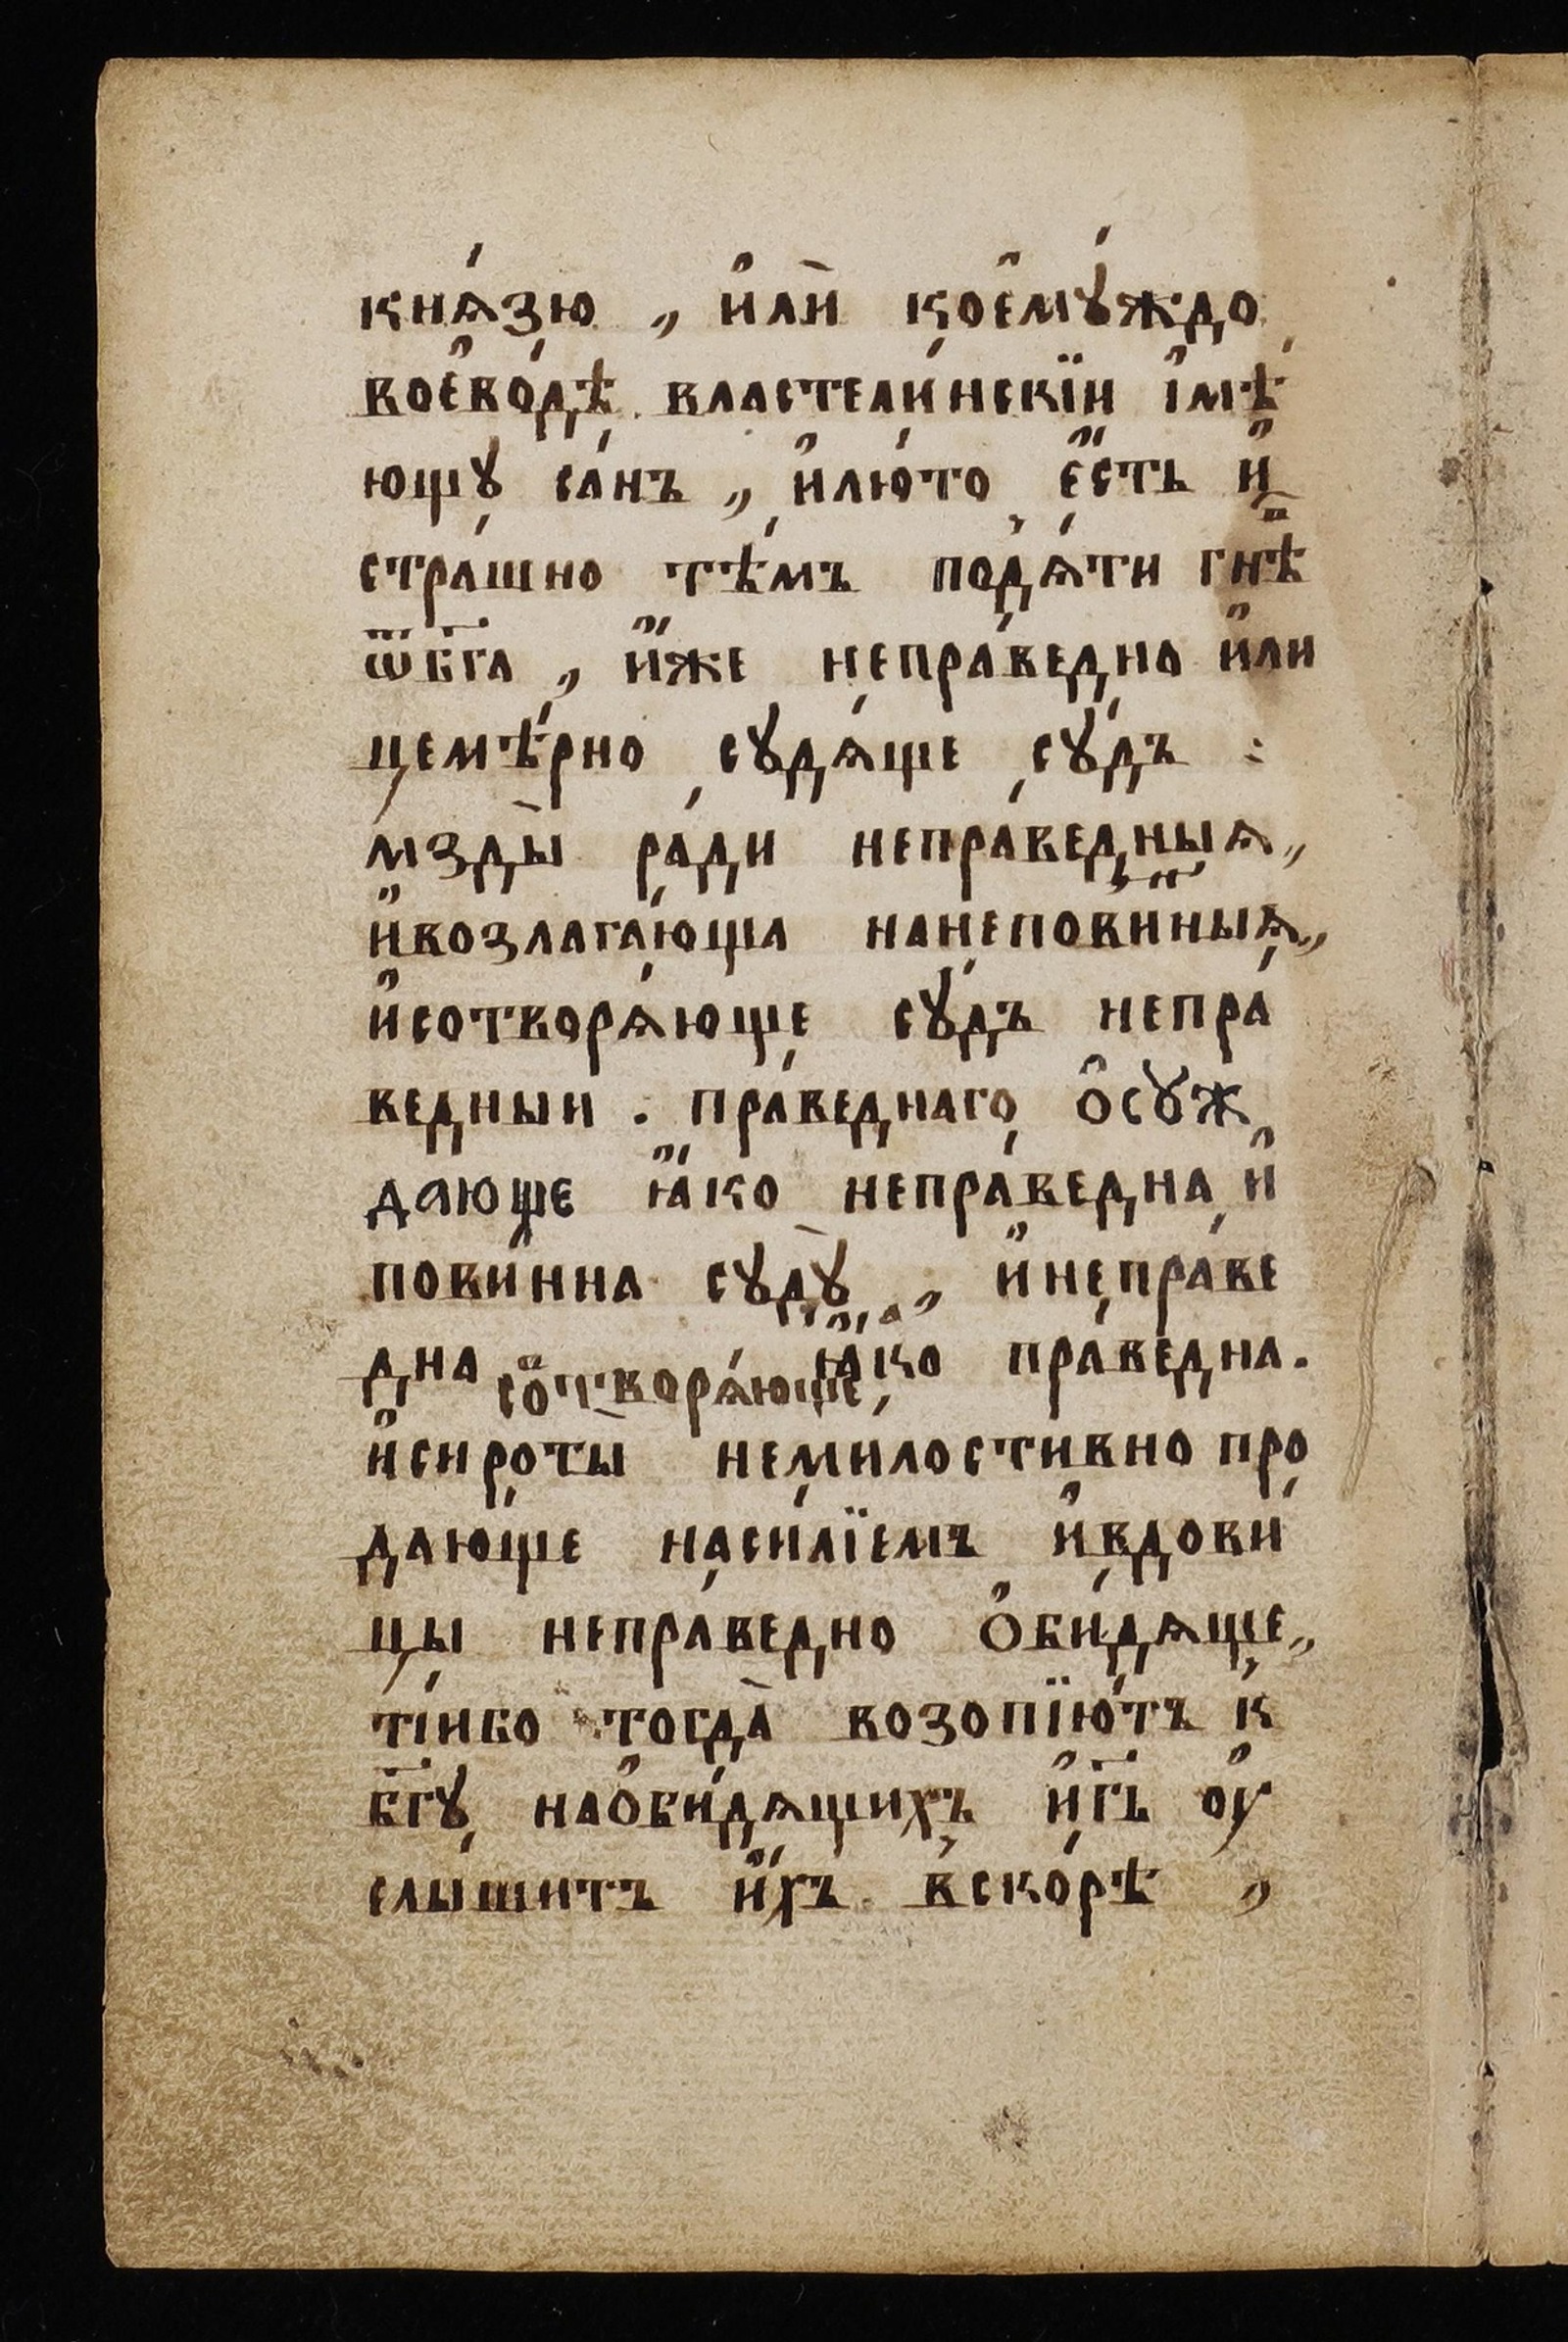 кнѧ́зю „ и҆лѝ коемꙋ́ждо
воево́дѣ властели́нскїи имѣ́
ющꙋ са́нъ „ и҆лю́то є҆́сть и҆
стра́шно тѣ́мъ подѧ́ти гнѣ̑
ѿ бг҃а „ и҆́же непра́ведно или
цемѣ́рно сꙋдѧ́ще сꙋ́дъ :
мзды̀ ра́ди непра́ведныѧ „
и҆возлага́юща нанепови́нныѧ „
и҆сотворѧ́юще сꙋ́дъ непра́
ведныи . пра́веднаго ѻ҆сꙋж
дающе ꙗ҆́ко непра́ведна и҆
пови́нна сꙋдꙋ̀ „ и҆непра́ве
дна сотворѧ́юще ꙗ҆́ко пра́ведна .
и҆сироты̀ неми́лостивно про
даю́ще наси́лїемъ и҆вдови́
цы непра́ведно ѻ҆би́дѧще „
ті́ибо тогда̀ возопїю́тъ к
бг҃ꙋ наоби́дѧщихъ и҆ г҃ь оу
слы́шитъ и҆́хъ вско́рѣ „